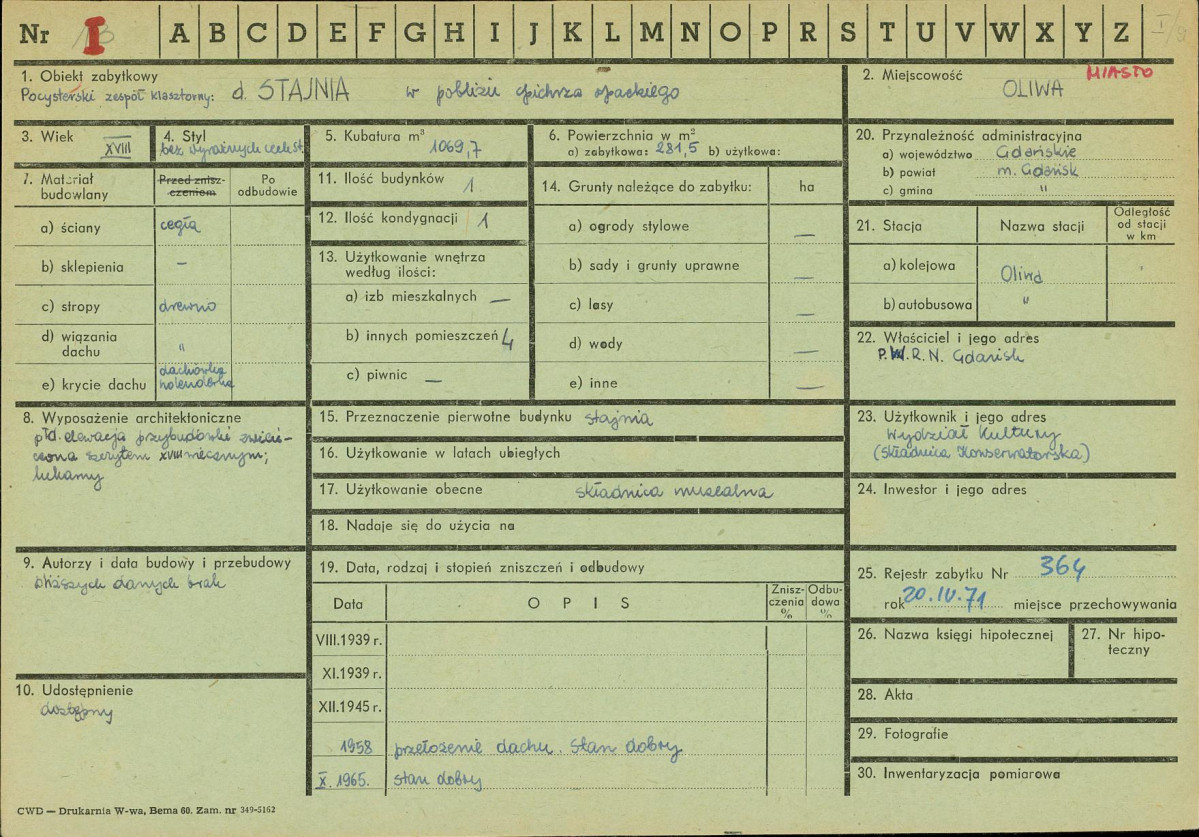 Nr I A B C D E F G H I J K L M N O P R S T U V W X Y Z
1. Obiekt zabytkowy
Pocysterski zespół klasztorny: d. STAJNIA w pobliżu spichrza opackiego
2. Miejscowość MIASTO
OLIWA
3. Wiek XVIII
4. Styl
bez wyraźnych cech st.
5. Kubatura m³
1069,7
6. Powierzchnia w m²
a) zabytkowa: 281,5 b) użytkowa:
7. Materiał budowlany
Przed zniszczeniem
Po odbudowie
a) ściany cegła
b) sklepienia –
c) stropy drewno
d) wiązania dachu "
e) krycie dachu dachówka holenderka
8. Wyposażenie architektoniczne
płd. elewacja przybudówki zwień-
czona szczytem XVIII wiecznym;
lukarny
9. Autorzy i data budowy i przebudowy
bliższych danych brak
10. Udostępnienie
dostępny
11. Ilość budynków 1
12. Ilość kondygnacji 1
13. Użytkowanie wnętrza według ilości:
a) izb mieszkalnych —
b) innych pomieszczeń 4
c) piwnic —
14. Grunty należące do zabytku: ha
a) ogrody stylowe —
b) sady i grunty uprawne —
c) lasy —
d) wody —
e) inne —
15. Przeznaczenie pierwotne budynku stajnia
16. Użytkowanie w latach ubiegłych
17. Użytkowanie obecne składnica muzealna
18. Nadaje się do użycia na
19. Data, rodzaj i stopień zniszczeń i odbudowy
Data OPIS Zniszczenia % Odbudowa %
VIII.1939 r.
XI.1939 r.
XII.1945 r.
1958 przełożenie dachu. Stan dobry
X. 1965. stan dobry
20. Przynależność administracyjna
a) województwo Gdańskie
b) powiat m. Gdańsk
c) gmina "
21. Stacja Nazwa stacji Odległość od stacji w km
a) kolejowa Oliwa
b) autobusowa "
22. Właściciel i jego adres
P.W.R.N. Gdańsk
23. Użytkownik i jego adres
Wydział Kultury
(Składnica Konserwatorska)
24. Inwestor i jego adres
25. Rejestr zabytku Nr 364
rok 20.IV.71 miejsce przechowywania
26. Nazwa księgi hipotecznej
27. Nr hipoteczny
28. Akta
29. Fotografie
30. Inwentaryzacja pomiarowa
CWD — Drukarnia W-wa, Bema 60. Zam. nr 349-5162